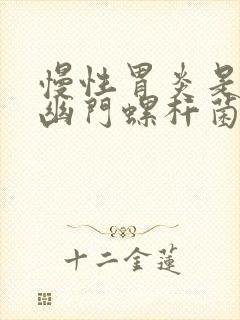 慢性胃炎是
幽門螺杆菌
十二金蓮